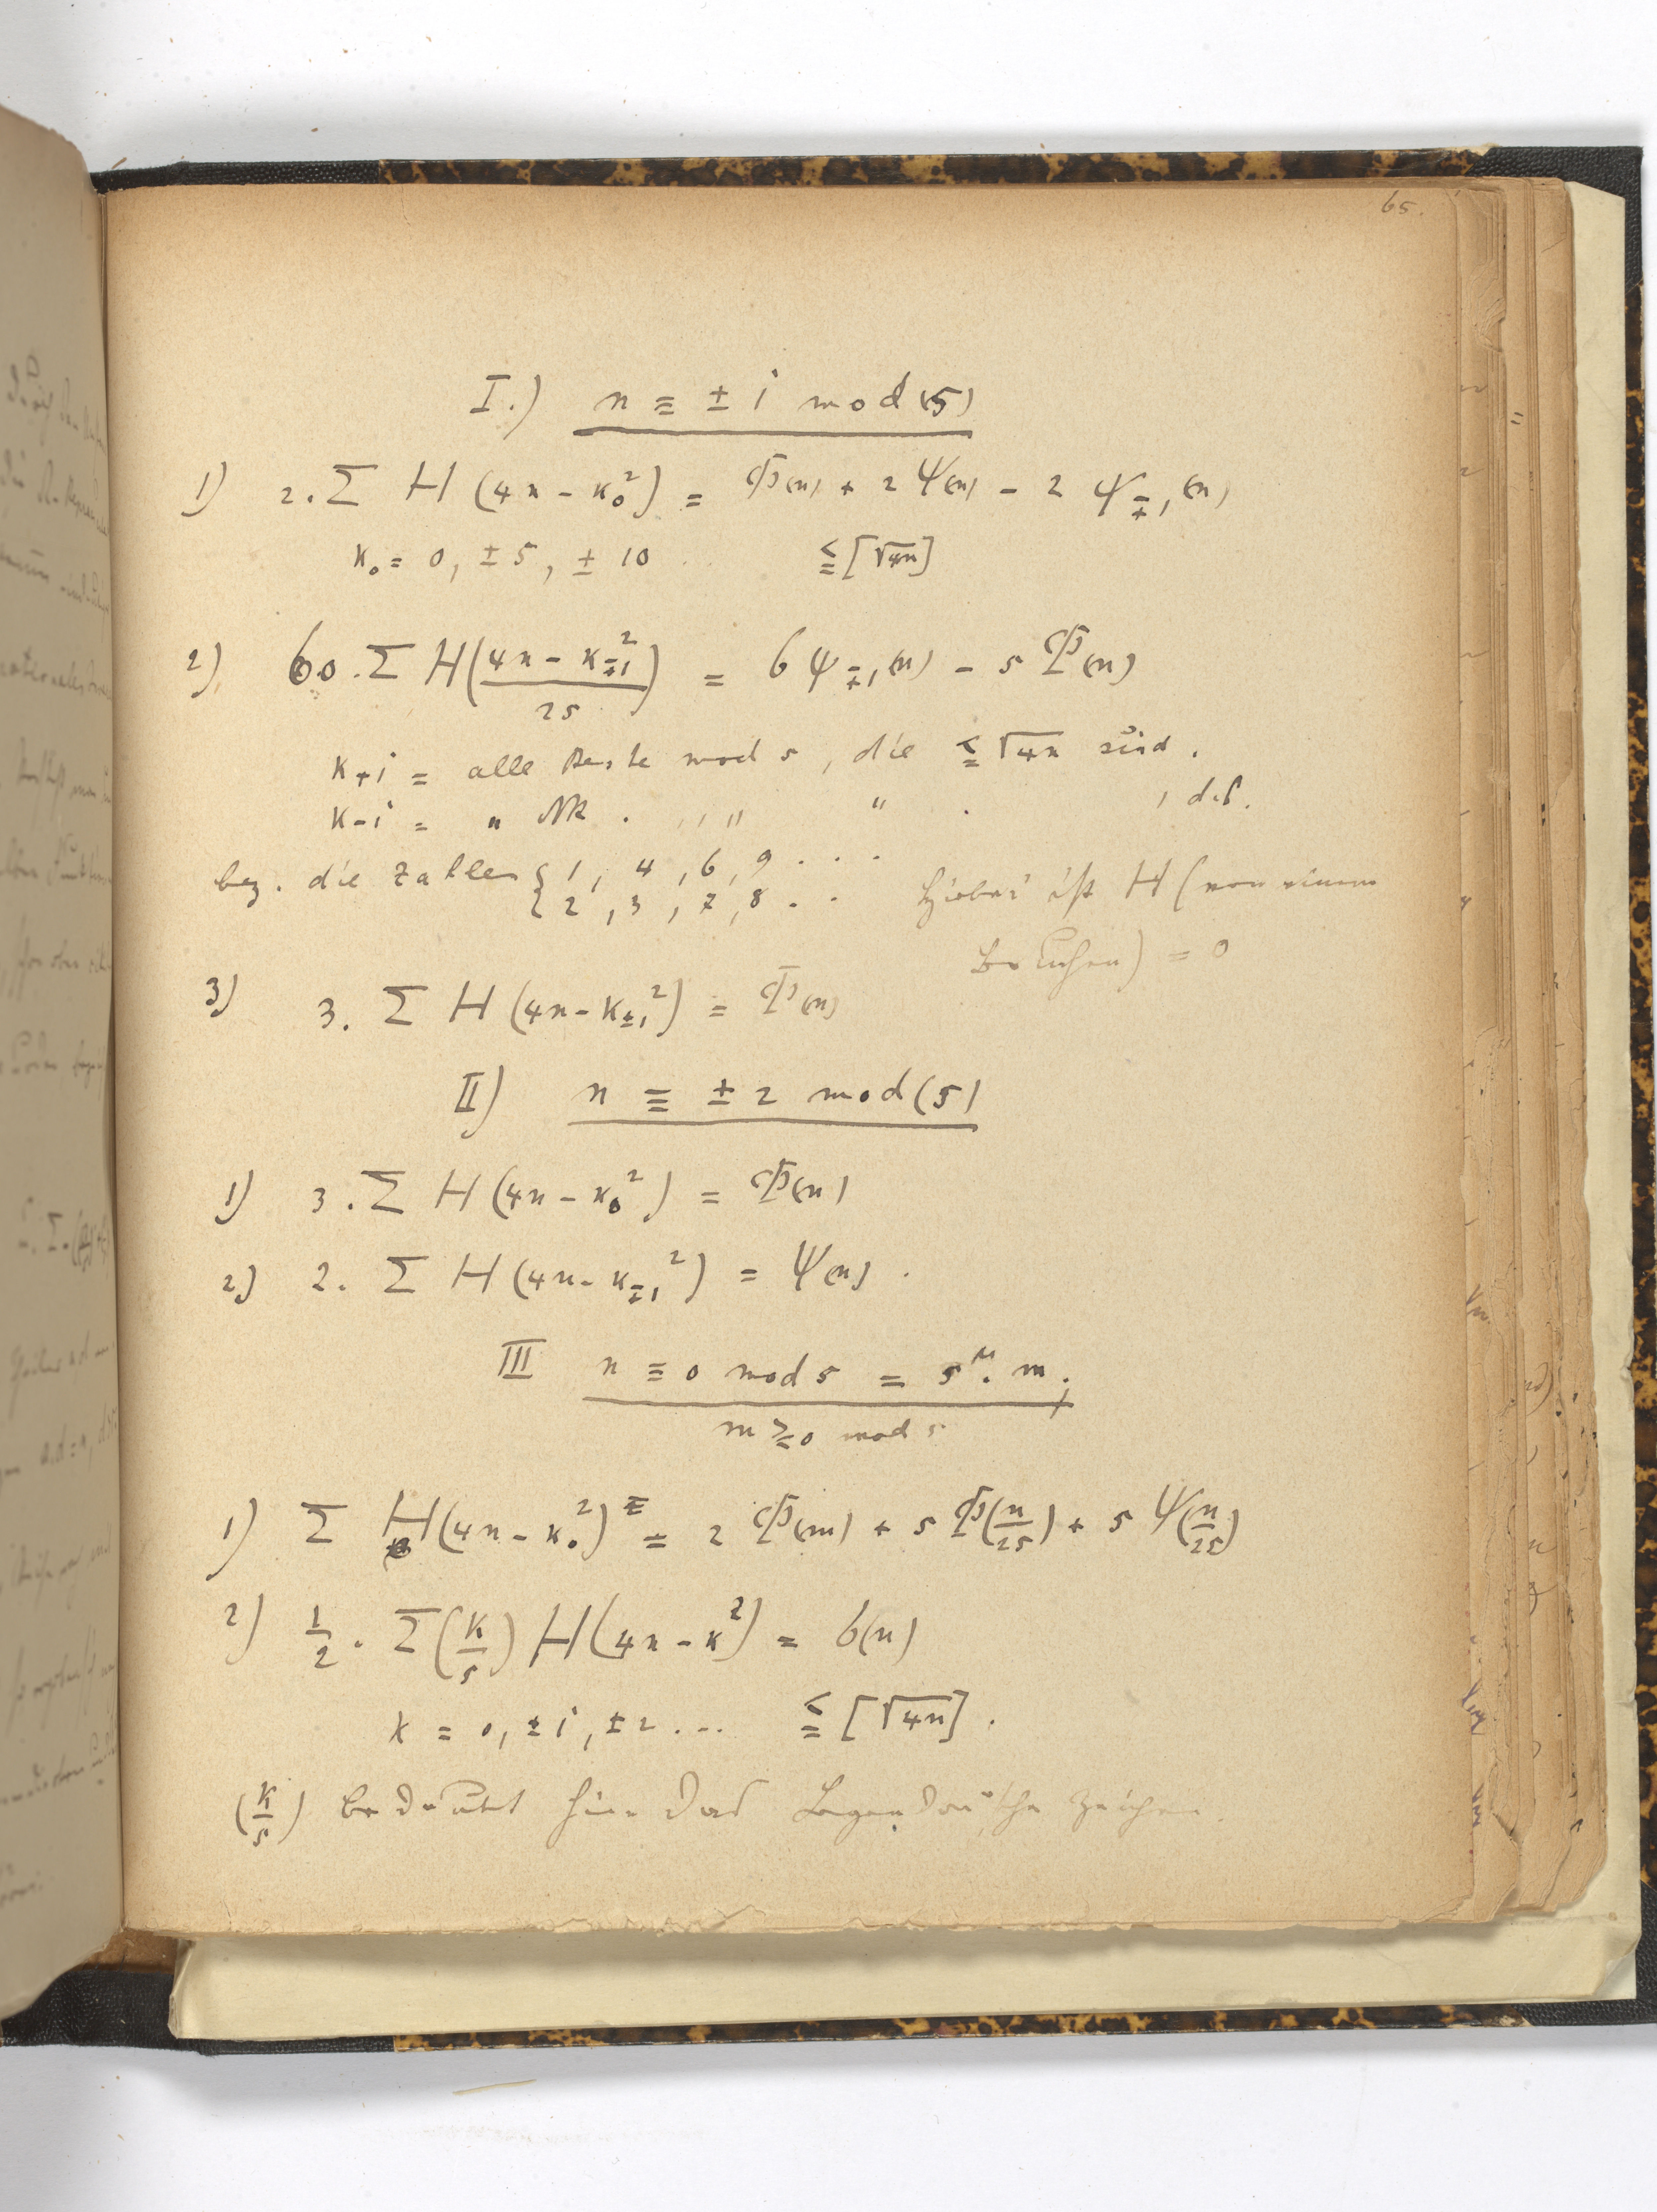 65.
I.) n ≡ ± 1 mod (5)
1) 2. Σ H (4n - κ₀²) = Φ(n) + 2 Ψ(n) - 2 Ψ∓₁(n)
κ₀ = 0, ± 5, ± 10 .. ≦ [√4n]
2) 60. Σ H((4n - κ∓₁²)/25) = 6 Ψ∓₁(n) - 5 Φ(n)
κ₊₁ = alle Reste mod 5, die ≦ √4n sind.
κ₋₁ = " NR . " " " . , d.h.
bez. die Zahlen { 1, 4, 6, 9 . . .
{ 2, 3, 7, 8 . . Hiebei ist H (von einem
Bruchen) = 0
3) 3. Σ H (4n - κ±₁²) = Φ(n)
II) n ≡ ± 2 mod (5)
1) 3. Σ H (4n - κ₀²) = Φ(n)
2) 2. Σ H (4n - κ∓₁²) = Ψ(n) .
III n ≡ 0 mod 5 = 5^μ. m;
m ≷ 0 mod 5
1) Σ H(4n - κ₀²) = 2 Φ(m) + 5 Φ(n/25) + 5 Ψ(n/25)
2) 1/2 . Σ (κ/5) H(4n - κ²) = 6(n)
κ = 0, ±1, ±2 ... ≦ [√4n] .
(κ/5) bedeutet hier das Legendre'sche Zeichen.